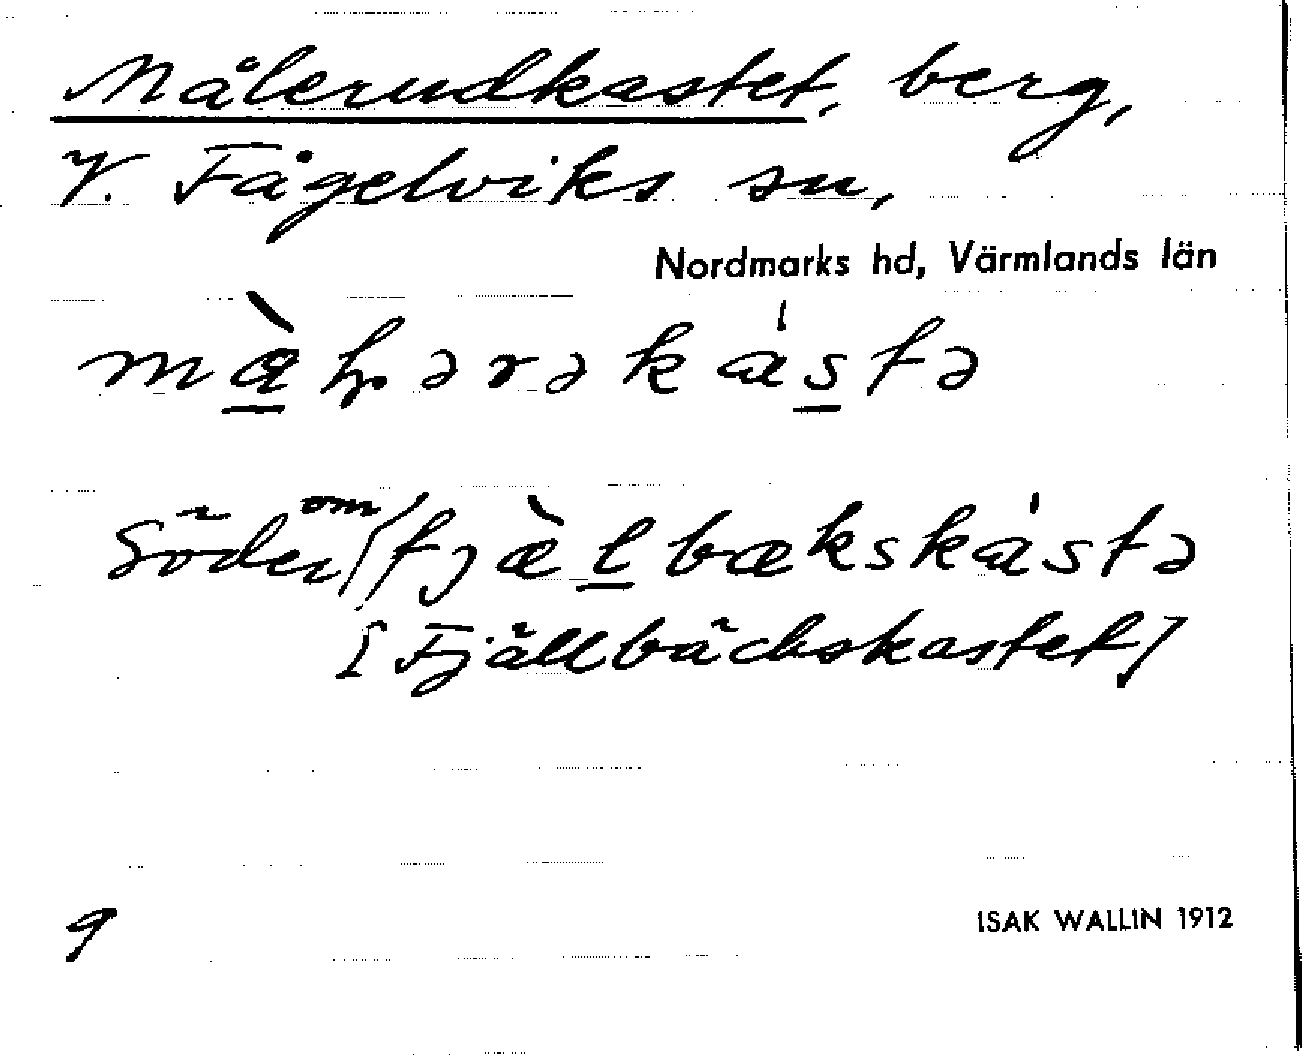 Målerudkastet, berg,
V. Fågelviks sn,
Nordmarks hd, Värmlands län
Söder om fjæ̀lbækskástə
[Fjällbäckskastet]
9
ISAK WALLIN 1912